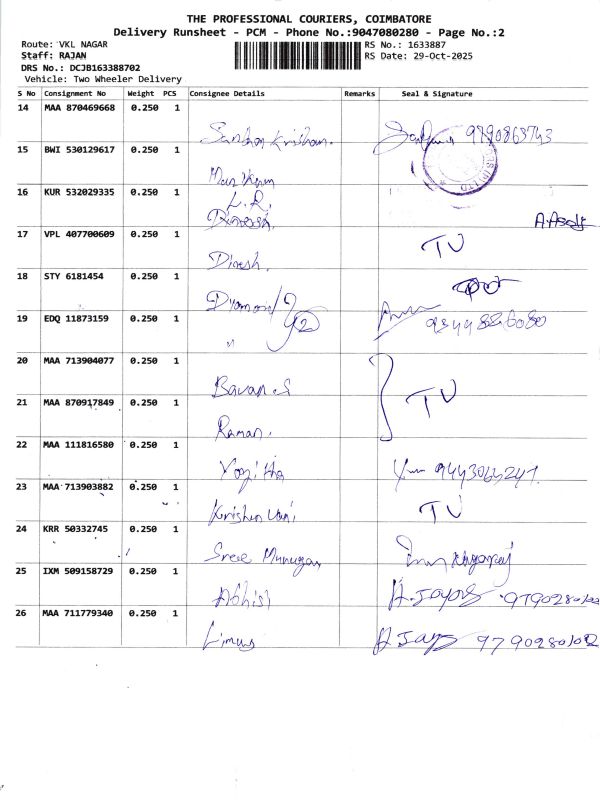 THE PROFESSIONAL COURIERS, COIMBATORE
Delivery Runsheet - PCM - Phone No.:9047080280 - Page No.:2
Route: VKL NAGAR RS No.: 1633887
Staff: RAJAN RS Date: 29-Oct-2025
DRS No.: DCJB163388702
Vehicle: Two Wheeler Delivery
S No Consignment No Weight PCS Consignee Details Remarks Seal & Signature
14 MAA 870469668 0.250 1
9790863743
15 BWI 530129617 0.250 1
16 KUR 532029335 0.250 1
L.R.
Dinesh.
17 VPL 407700609 0.250 1
Dinesh. TV
18 STY 6181454 0.250 1
Dyamond
19 EDQ 11873159 0.250 1
20 MAA 713904077 0.250 1
Bavan.S
21 MAA 870917849 0.250 1 TV
Raman.
22 MAA 111816580 0.250 1
Yogitha 9443065247.
23 MAA 713903882 0.250 1
Krishen Vani TV
24 KRR 50332745 0.250 1
Sree Murugan
25 IXM 509158729 0.250 1
Abhist
26 MAA 711779340 0.250 1
9790280102